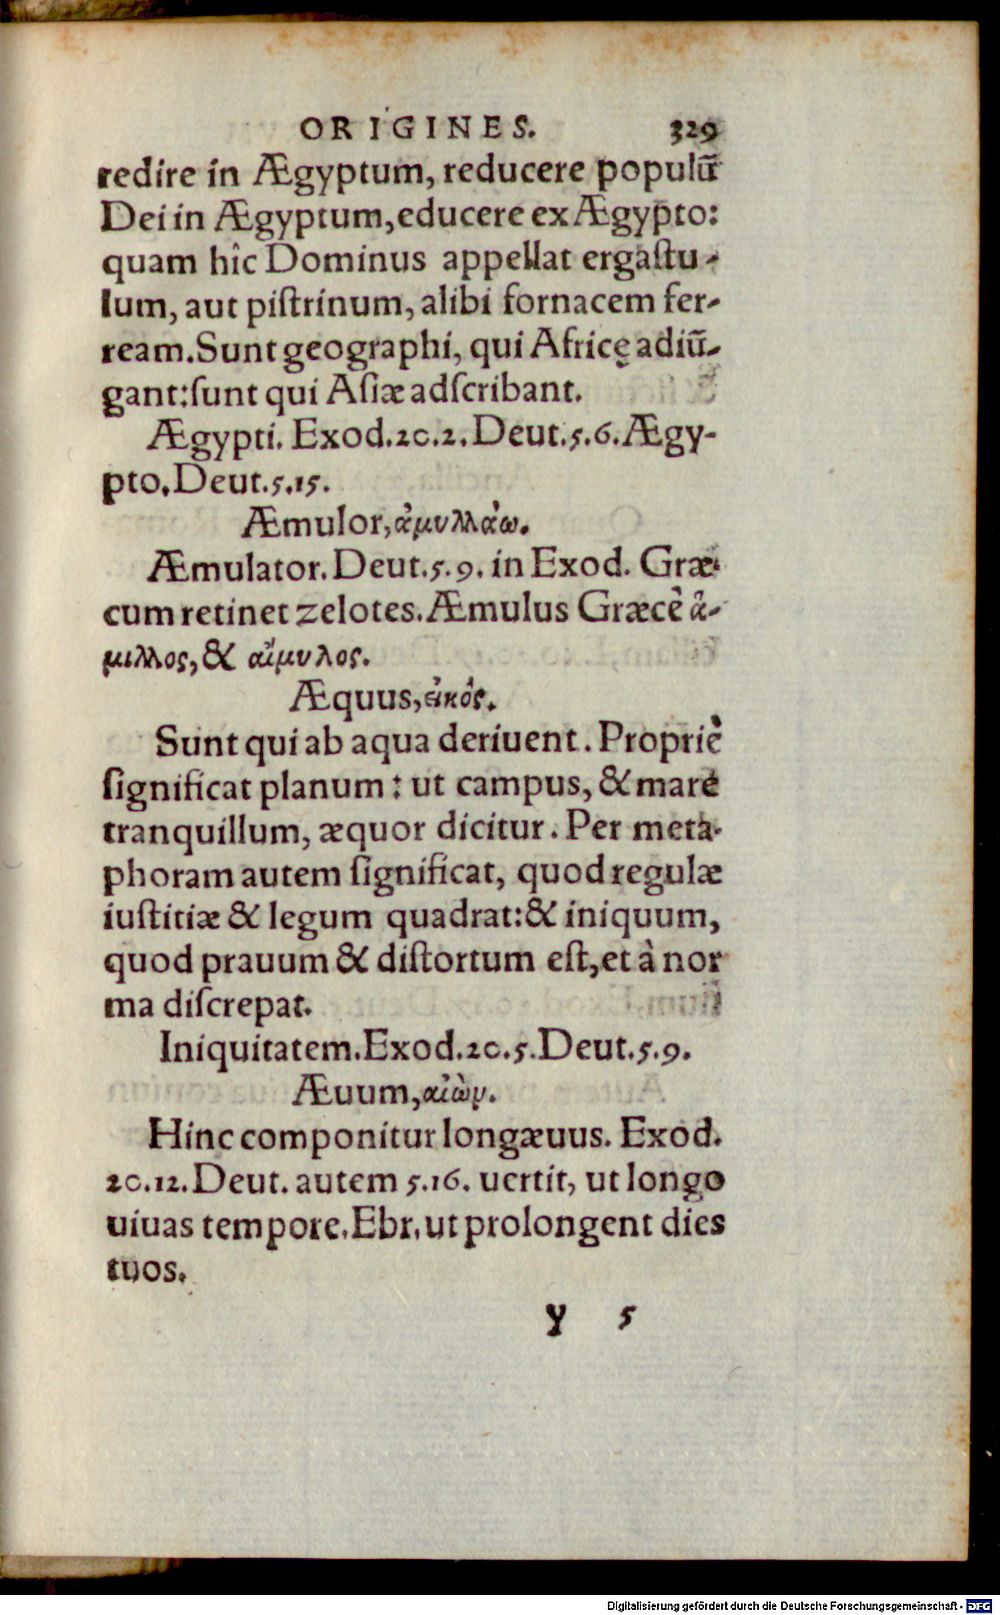 ORIGINES. 329
redire in Ægyptum, reducere populũ
Dei in Ægyptum, educere ex Ægypto:
quam hîc Dominus appellat ergaſtu-
lum, aut piſtrinum, alibi fornacem fer-
ream. Sunt geographi, qui Africę adiũ-
gant: ſunt qui Aſiæ adſcribant.
Ægypti. Exod.20.2. Deut.5.6. Ægy-
pto. Deut.5.15.
Æmulor, ἁμυλλάω.
Æmulator. Deut.5.9. in Exod. Græ-
cum retinet zelotes. Æmulus Græcè ἅ-
μιλλος, & αἵμυλος.
Æquus, εἰκός.
Sunt qui ab aqua deriuent. Propriè
ſignificat planum: ut campus, & mare
tranquillum, æquor dicitur. Per meta-
phoram autem ſignificat, quod regulæ
iuſtitiæ & legum quadrat: & iniquum,
quod prauum & diſtortum eſt, et à nor
ma diſcrepat.
Iniquitatem. Exod.20.5. Deut.5.9.
Æuum, αἰών.
Hinc componitur longæuus. Exod.
20.12. Deut. autem 5.16. uertit, ut longo
uiuas tempore. Ebr. ut prolongent dies
tuos.
y 5
Digitalisierung gefördert durch die Deutsche Forschungsgemeinschaft - DFG